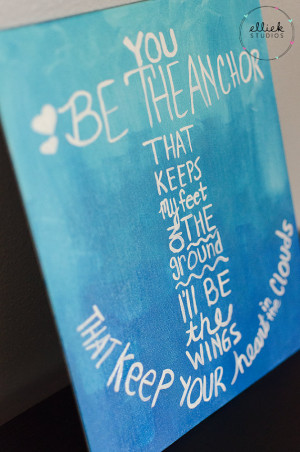 elliek
STUDIOS
YOU
BE THE ANCHOR
THAT
KEEPS
my feet
ON THE
ground
I'll BE
the
WINGS
THAT KEEP YOUR heart in the clouds